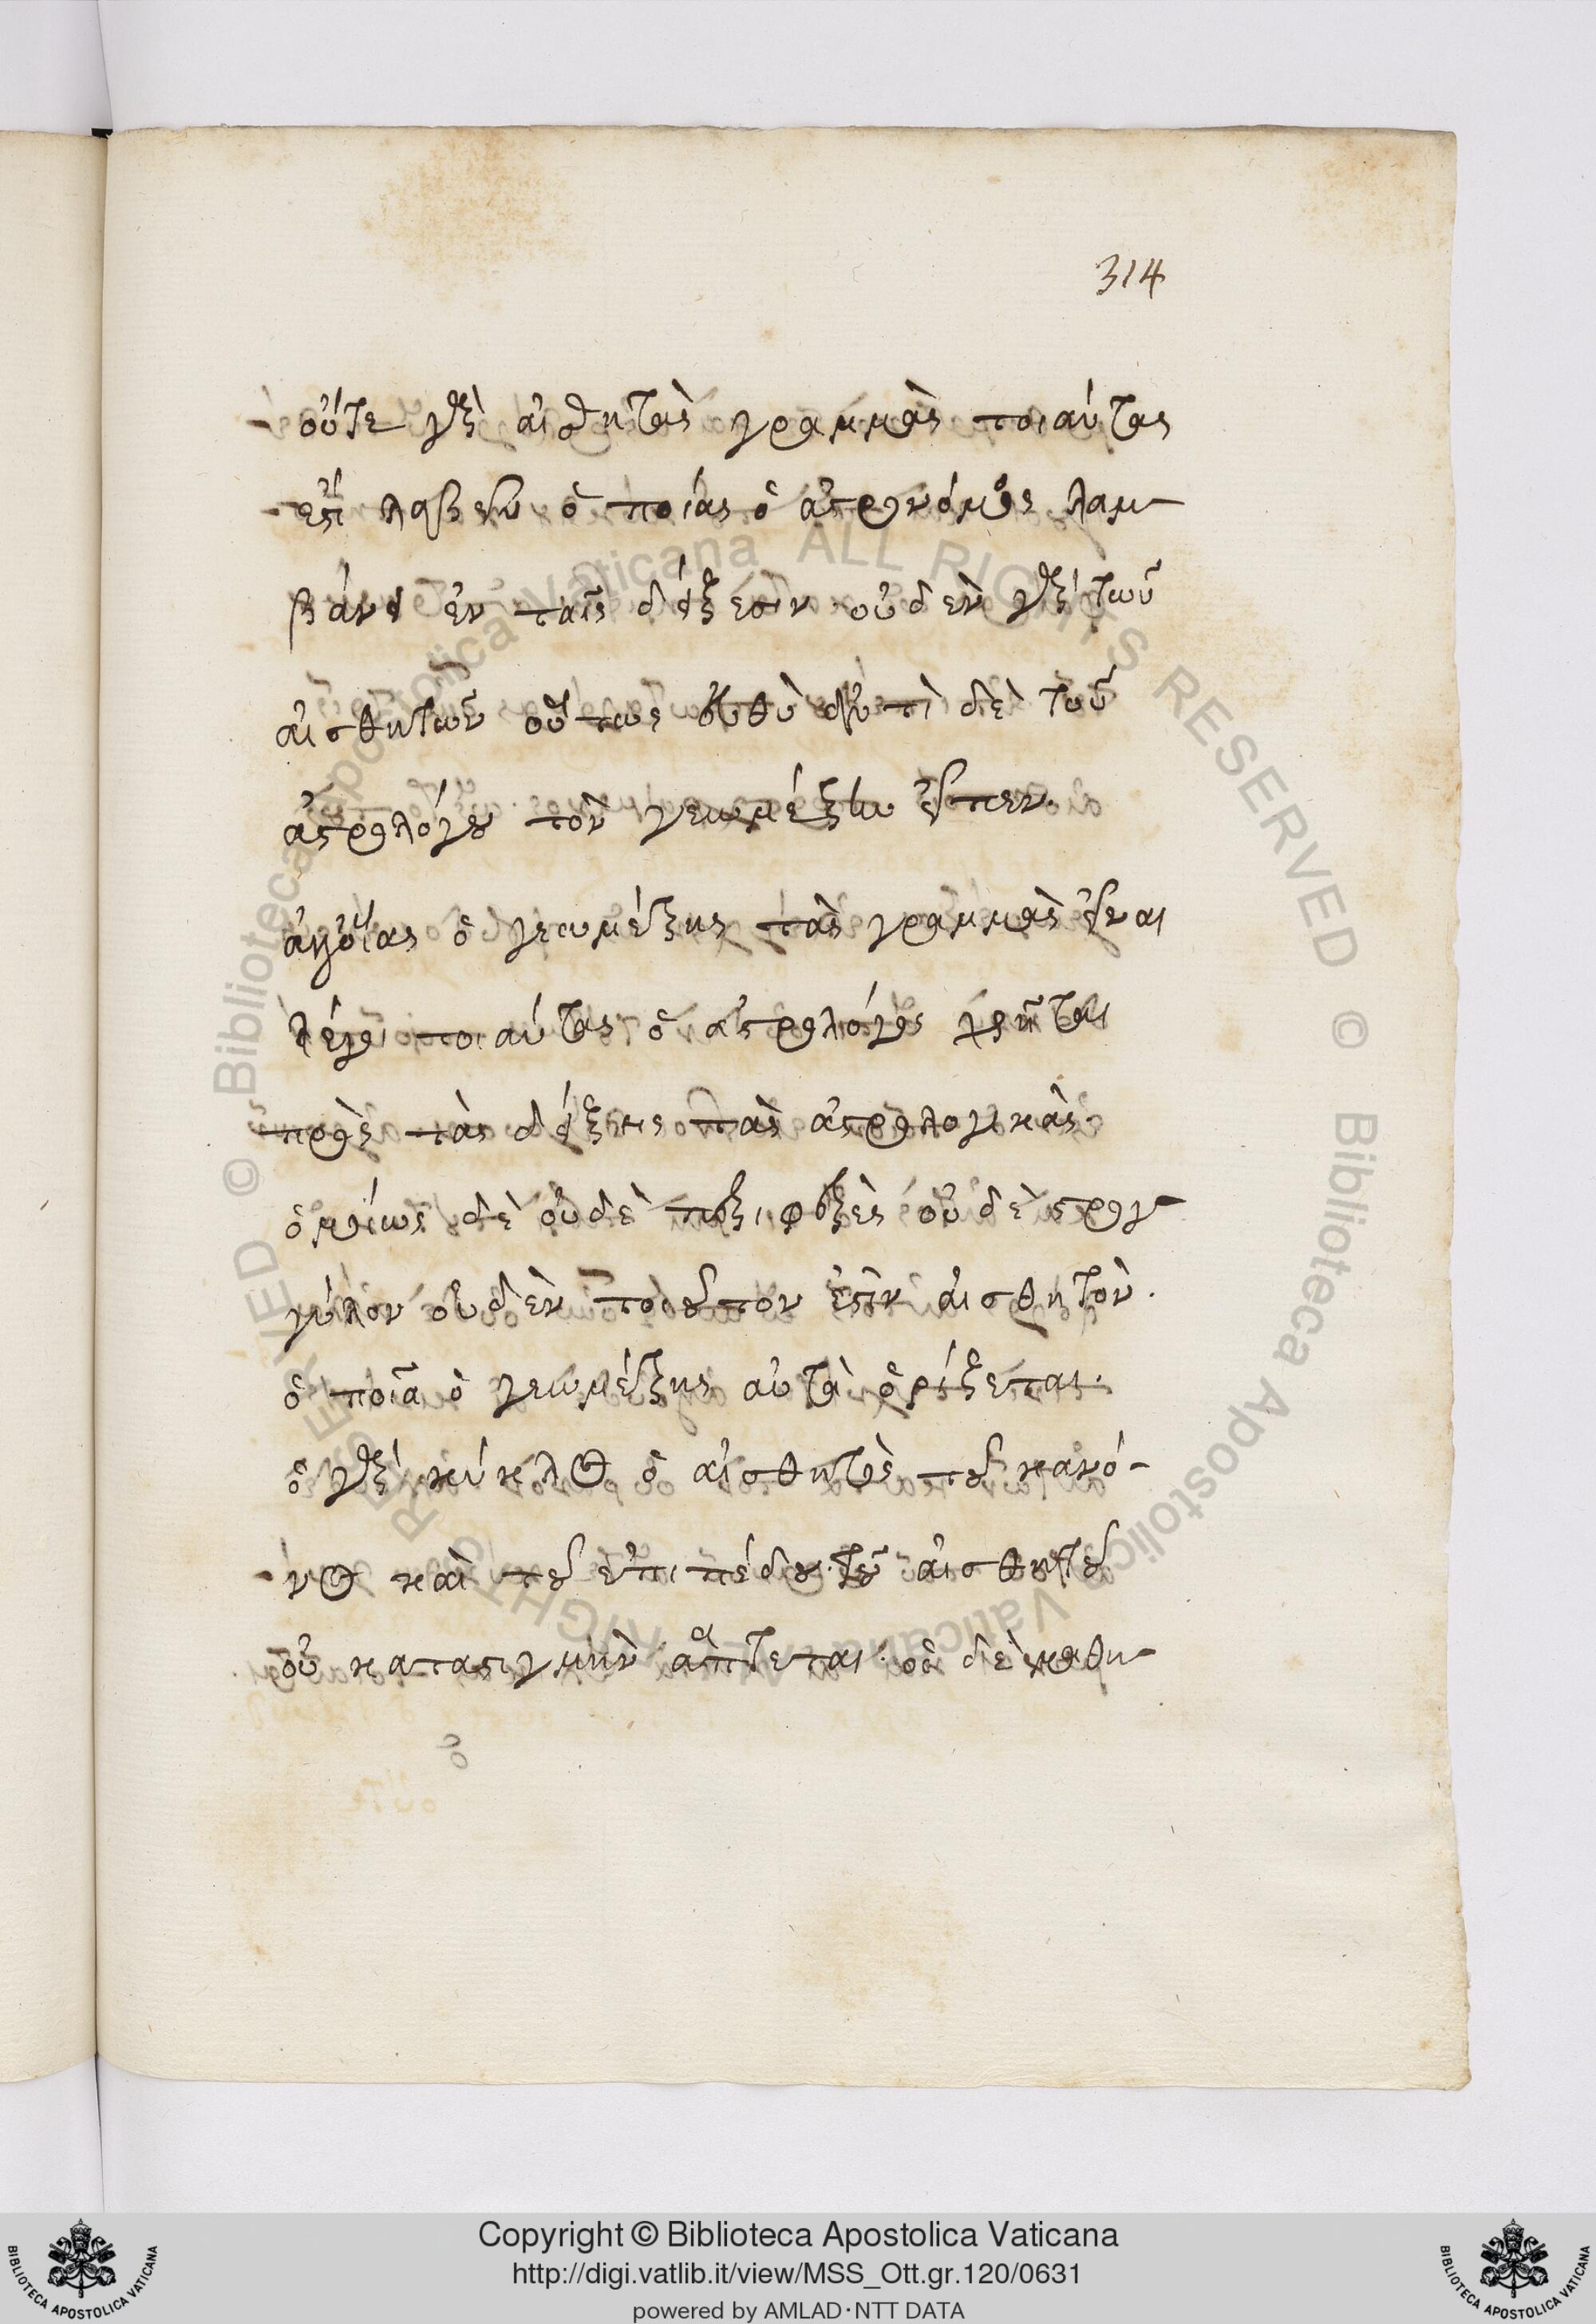 314
οὔτε γὰρ αἰσθητὰς γραμμὰς τοιαύτας
ἐστὶ λαβεῖν ὁποίας ὁ ἀστρονόμος λαμ-
βάνει ἐν ταῖς δείξεσιν· οὐδὲν γὰρ τῶν
αἰσθητῶν οὕτως εὐθὺ ἀντὶ δὲ τοῦ
ἀστρολόγου τὸν γεωμέτρην εἶπεν.
ὁποίας ὁ γεωμέτρης τὰς γραμμὰς εἶναι
λέγει τοιαύτας ὁ ἀστρολόγος χρῆται
πρὸς τὰς δείξεις τὰς ἀστρολογικὰς·
ὁμοίως δὲ οὐδὲ περιφερὲς οὐδὲ στρογ-
γύλον οὐδὲν τοιοῦτον ἐστὶν αἰσθητὸν.
ὁποῖα ὁ γεωμέτρης αὐτὰ ὁρίζεται.
ὁ γὰρ κύκλος ὁ αἰσθητὸς τοῦ κανό-
νος καὶ τοῦ ἐπιπέδου τοῦ αἰσθητοῦ
οὐ κατὰ στιγμὴν ἅπτεται· ὁ δὲ μαθη-
Copyright © Biblioteca Apostolica Vaticana
http://digi.vatlib.it/view/MSS_Ott.gr.120/0631
powered by AMLAD·NTT DATA
BIBLIOTECA APOSTOLICA VATICANA
BIBLIOTECA APOSTOLICA VATICANA
© Biblioteca Apostolica Vaticana ALL RIGHTS RESERVED © Biblioteca Apostolica Vaticana ALL RIGHTS RESERVED